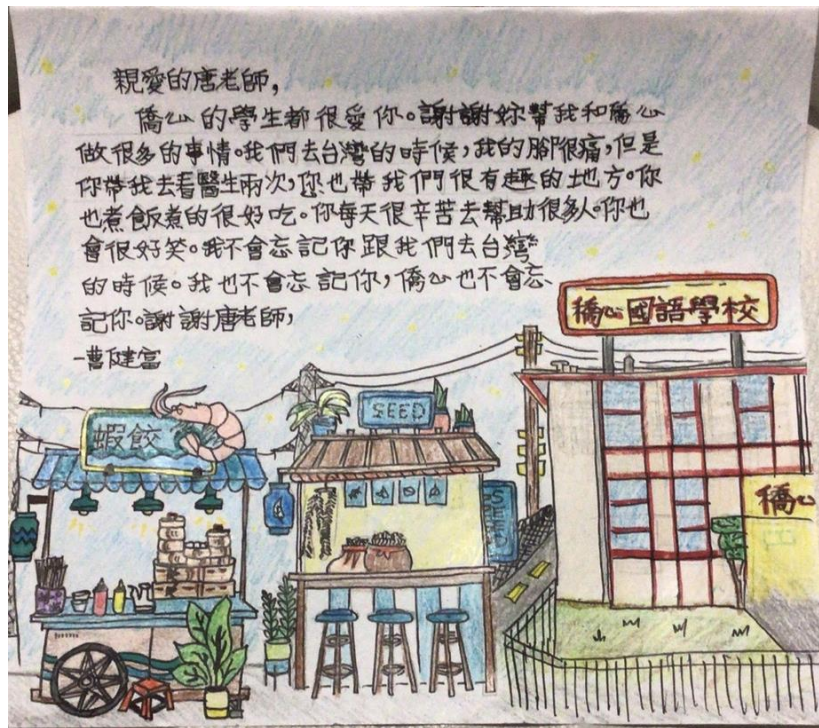 親愛的唐老師,
僑心的學生都很愛你。謝謝妳幫我和僑心
做很多的事情。我們去台灣的時候,我的腳很痛,但是
你帶我去看醫生兩次,您也帶我們很有趣的地方。你
也煮飯煮的很好吃。你每天很辛苦去幫助很多人。你也
會很好笑。我不會忘記你跟我們去台灣
的時候。我也不會忘記你,僑心也不會忘
記你。謝謝唐老師,
-曹健富
僑心國語學校
SEED
蝦餃
SEED
僑心